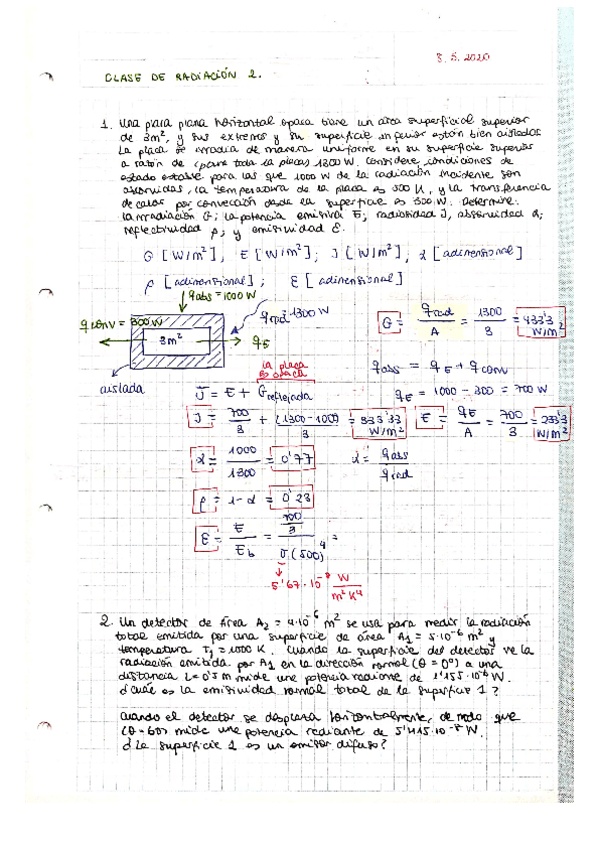 8.5.2020
CLASE DE RADIACIÓN 2.
1. Una placa plana horizontal opaca tiene un área superficial superior
de 3m², y sus extremos y su superficie inferior están bien aislados
La placa se irradia de manera uniforme en su superficie superior
a razón de (para toda la placa) 1300 W. Considere condiciones de
estado estable para las que 1000 W de la radiación incidente son
absorbidas, la temperatura de la placa es 500 K, y la transferencia
de calor por convección desde la superficie es 300 W. Determine:
la irradiación G; la potencia emisiva E; radiosidad J, absorividad α;
reflectividad ρ; y emisividad ε.
G [W/m²], E [W/m²]; J [W/m²], α [adimensional]
ρ [adimensional]; ε [adimensional]
q abs = 1000 W
q conv = 300 W
q rad 1300 W
3m²
q E
aislada
G = q rad / A = 1300 / 3 = 433'3 W/m²
q abs = q E + q conv
la placa es opaca
J = E + G reflejada
q E = 1000 - 300 = 700 W
J = 700/3 + (1300-1000)/3 = 333'33 W/m²
E = q E / A = 700 / 3 = 233'3 W/m²
α = 1000 / 1300 = 0'77
α = q abs / q rad
ρ = 1-α = 0'23
ε = E / E b = (700/3) / σ(500)⁴ =
5'67·10⁻⁸ W / m² K⁴
2. Un detector de área A₂ = 4·10⁻⁶ m² se usa para medir la radiación
total emitida por una superficie de área A₁ = 5·10⁻⁶ m² y
temperatura T₁ = 1000 K. Cuando la superficie del detector ve la
radiación emitida por A₁ en la dirección normal (θ = 0º) a una
distancia L = 0'5 m mide una potencia radiante de 1'155·10⁻⁶ W.
¿Cuál es la emisividad normal total de la superficie 1?
Cuando el detector se desplaza horizontalmente, de modo que
(θ = 60) mide una potencia radiante de 5'415·10⁻⁸ W.
¿La superficie 1 es un emisor difuso?